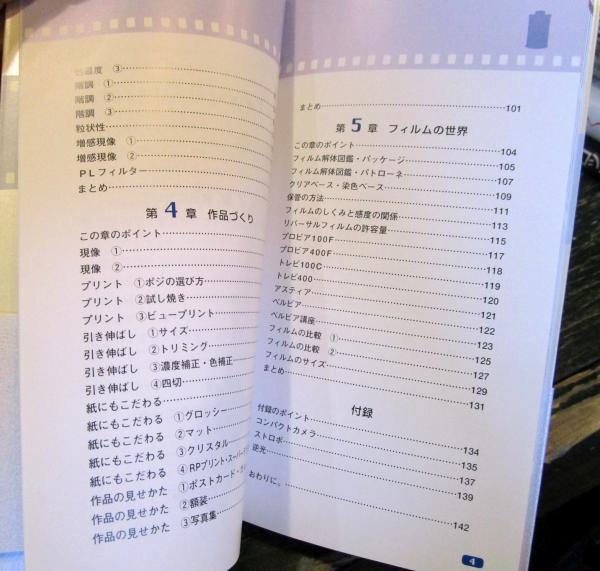 色温度 ③
階調 ①
階調 ②
階調 ③
粒状性
増感現像 ①
増感現像 ②
PLフィルター
まとめ
第4章 作品づくり
この章のポイント
現像 ①
現像 ②
プリント ①ポジの選び方
プリント ②試し焼き
プリント ③ビュープリント
引き伸ばし ①サイズ
引き伸ばし ②トリミング
引き伸ばし ③濃度補正・色補正
引き伸ばし ④四切
紙にもこだわる
紙にもこだわる ①グロッシー
紙にもこだわる ②マット
紙にもこだわる ③クリスタル
紙にもこだわる ④RPプリント・スーパー
作品の見せかた ①ポストカード・カ
作品の見せかた ②額装
作品の見せかた ③写真集
まとめ 101
第5章 フィルムの世界
この章のポイント 104
フィルム解体図鑑・パッケージ 105
フィルム解体図鑑・パトローネ 107
クリアベース・染色ベース 109
保管の方法 111
フィルムのしくみと感度の関係 113
リバーサルフィルムの許容量 115
プロビア100F 117
プロビア400F 118
トレビ100C 119
トレビ400 120
アスティア 121
ベルビア 122
ベルビア講座 123
フィルムの比較 ① 125
フィルムの比較 ② 127
フィルムのサイズ 129
まとめ 131
付録
付録のポイント 134
コンパクトカメラ 135
ストロボ 137
逆光 139
おわりに。 142
4